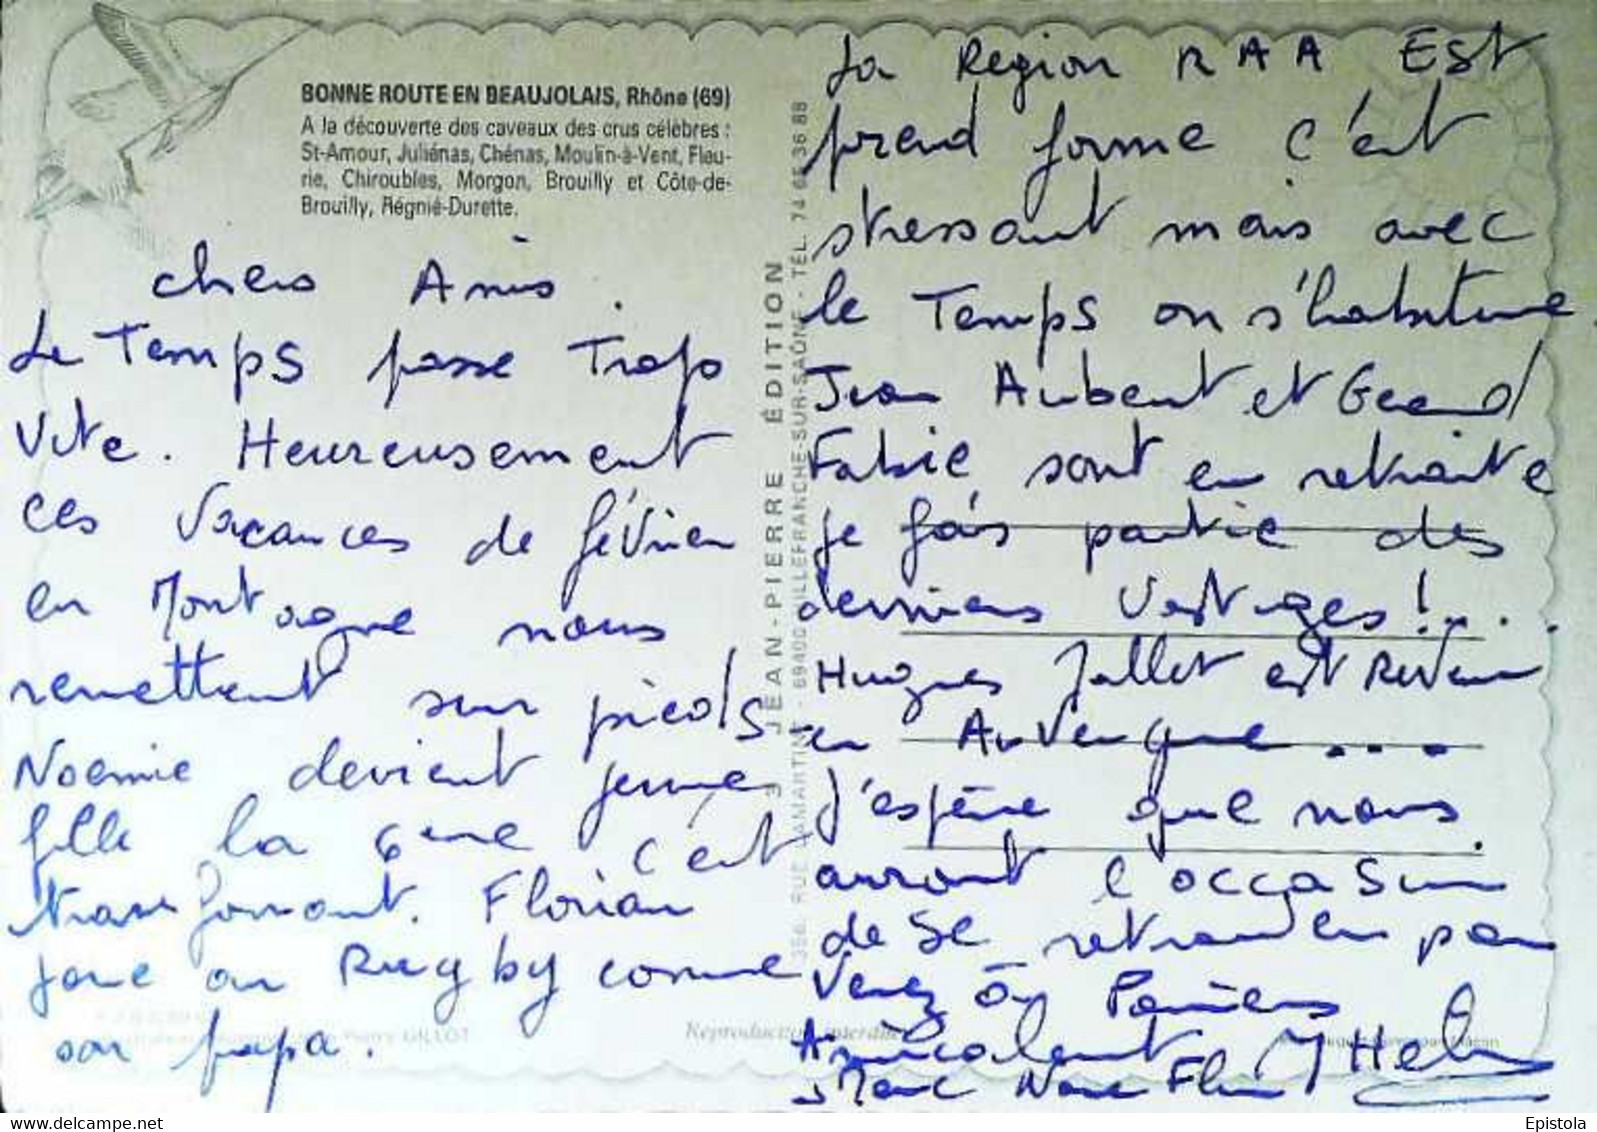 BONNE ROUTE EN BEAUJOLAIS, Rhône (69)
A la découverte des caveaux des crus célèbres :
St-Amour, Juliénas, Chénas, Moulin-à-Vent, Fleu-
rie, Chiroubles, Morgon, Brouilly et Côte-de-
Brouilly, Régnié-Durette.
chers Amis.
Le Temps passe Trop
Vite. Heureusement
ces Vacances de février
en Montagne nous
remettent sur pieds.
Noemie devient jeune
fille la 6eme c'est
transformant. Florian
joue au Rugby comme
son papa.
JEAN-PIERRE ÉDITION
356, RUE LAMARTINE - 69400 VILLEFRANCHE-SUR-SAÔNE - TÉL. 74 65 36 88
La Region RAA Est
prend forme c'est
stressant mais avec
le Temps on s'habitue.
Jean Aubert et Gerard
Fabie sont en retraite
je fais partie des
derniers Vestiges!...
Hugues Jallet est Revenu
en Auvergne...
J'espère que nous
auront l'occasion
de se retrouver
Venez
Amicalement
Marc
Reproduction interdite
Epistola